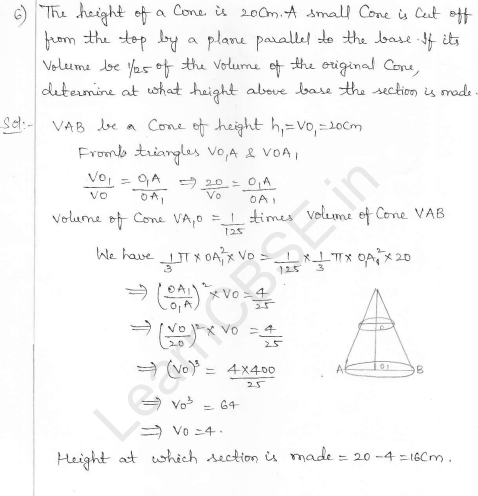 6) The height of a Cone is 20cm. A small Cone is Cut off
from the top by a plane parallel to the base. If its
Volume be 1/25 of the Volume of the original Cone,
determine at what height above base the section is made.
Sol:- VAB be a Cone of height h₁ = VO₁ = 20cm
From triangles VO₁A & VOA₁
VO₁/VO = O₁A/OA₁ ⇒ 20/VO = O₁A/OA₁
Volume of Cone VA₁O = 1/125 times Volume of Cone VAB
We have 1/3 π × OA₁² × VO = 1/125 × 1/3 π × O₁A² × 20
⇒ (OA₁/O₁A)² × VO = 4/25
⇒ (VO/20)² × VO = 4/25
⇒ (VO)³ = 4×400/25
⇒ VO³ = 64
⇒ VO = 4.
A O₁ B
Height at which section is made = 20 - 4 = 16cm.
LearnCBSE.in